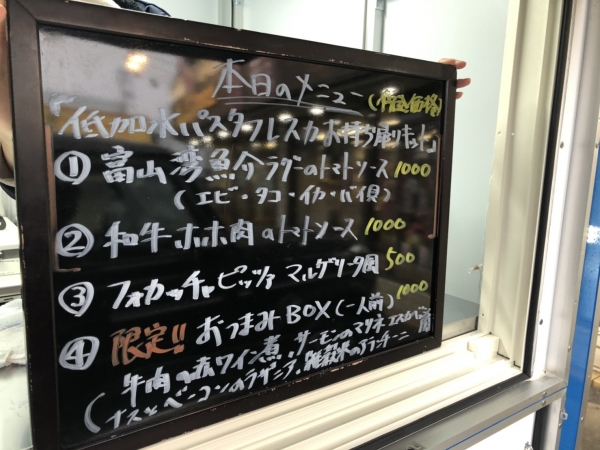 本日のメニュー (税込価格)
「低加水パスタフレスカお持ち帰りセット」
① 富山湾魚介ラグーのトマトソース 1000
(エビ・タコ・イカ・バイ貝)
② 和牛ホホ肉のトマトソース 1000
③ フォカッチャピッツァ マルゲリータ風 500
④ 限定!! おつまみBOX (一人前) 1000
(牛肉の赤ワイン煮、サーモンのマリネ エスカベ
ナスとベーコンのラザニア、雑穀米のアランチーニ